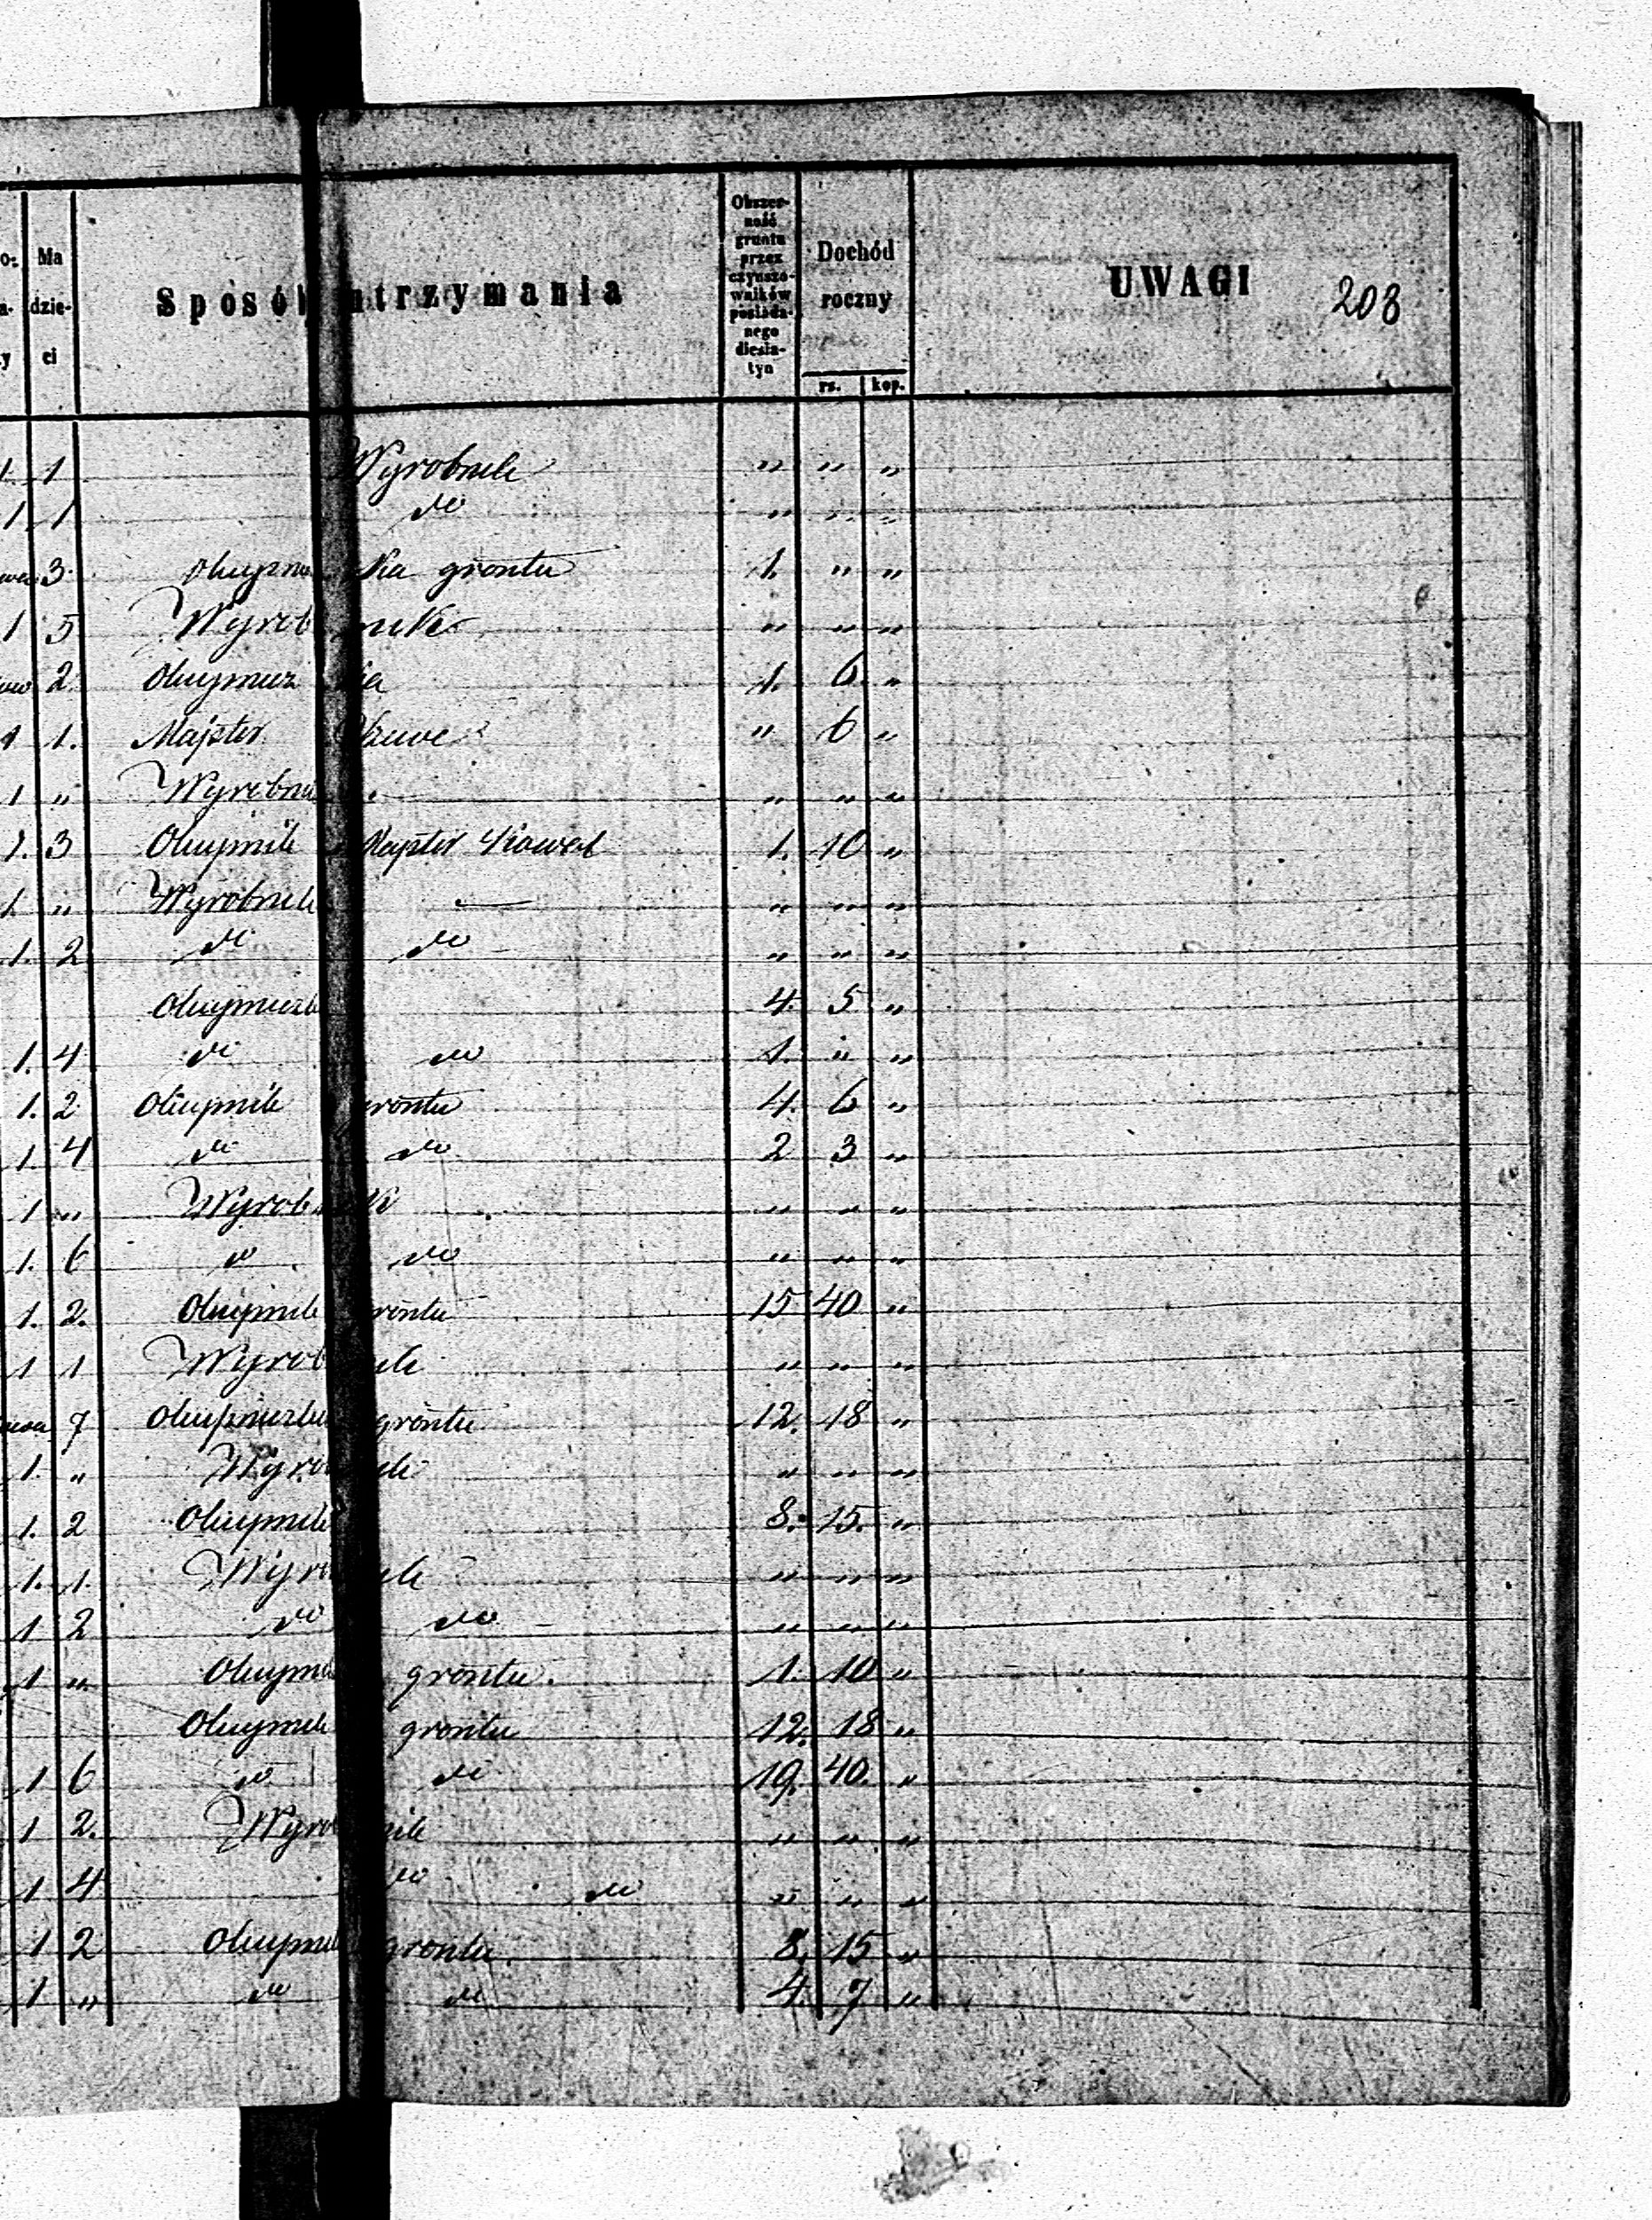 Ma dzieci
Sposób utrzymania
Obszerność gruntu przez czynszowników posiadanego diesiatyn
Dochód roczny
rs. kop.
UWAGI 208
1 1 Wyrobnik " " "
1. 1 do " " "
3. gröntu 1. " "
1 5 Wyrobnik " " "
2. 1. 6. "
1 1. Majster " 6 "
1 " " " "
1. 3 Okupnik Majster Kowal 1. 10 "
1. " Wyrobnik — " " "
1. 2 do do " " "
4. 5 "
1. 4 do do 1. " "
1. 2 Okupnik grontu 4. 6 "
1. 4 do do 2 3 "
1 " Wyrobnik " " "
1. 6 do do " " "
1. 2. Okupnik grontu 15 40 "
1 1 Wyrobnik " " "
7 gröntu 12. 18 "
1. " Wyrobnik " " "
1. 2 Okupnik 8. 15. "
1. 1. Wyrobnik " " "
1 2 do do " " "
1 " gröntu. 1. 10 "
Okupnik grontu 12. 18 "
1 6 do do 19. 40. "
1 2. Wyrobnik " " "
1 4 do do " " "
1 2 Okupnik grontu 8. 15 "
1 " do do 4. 7 "